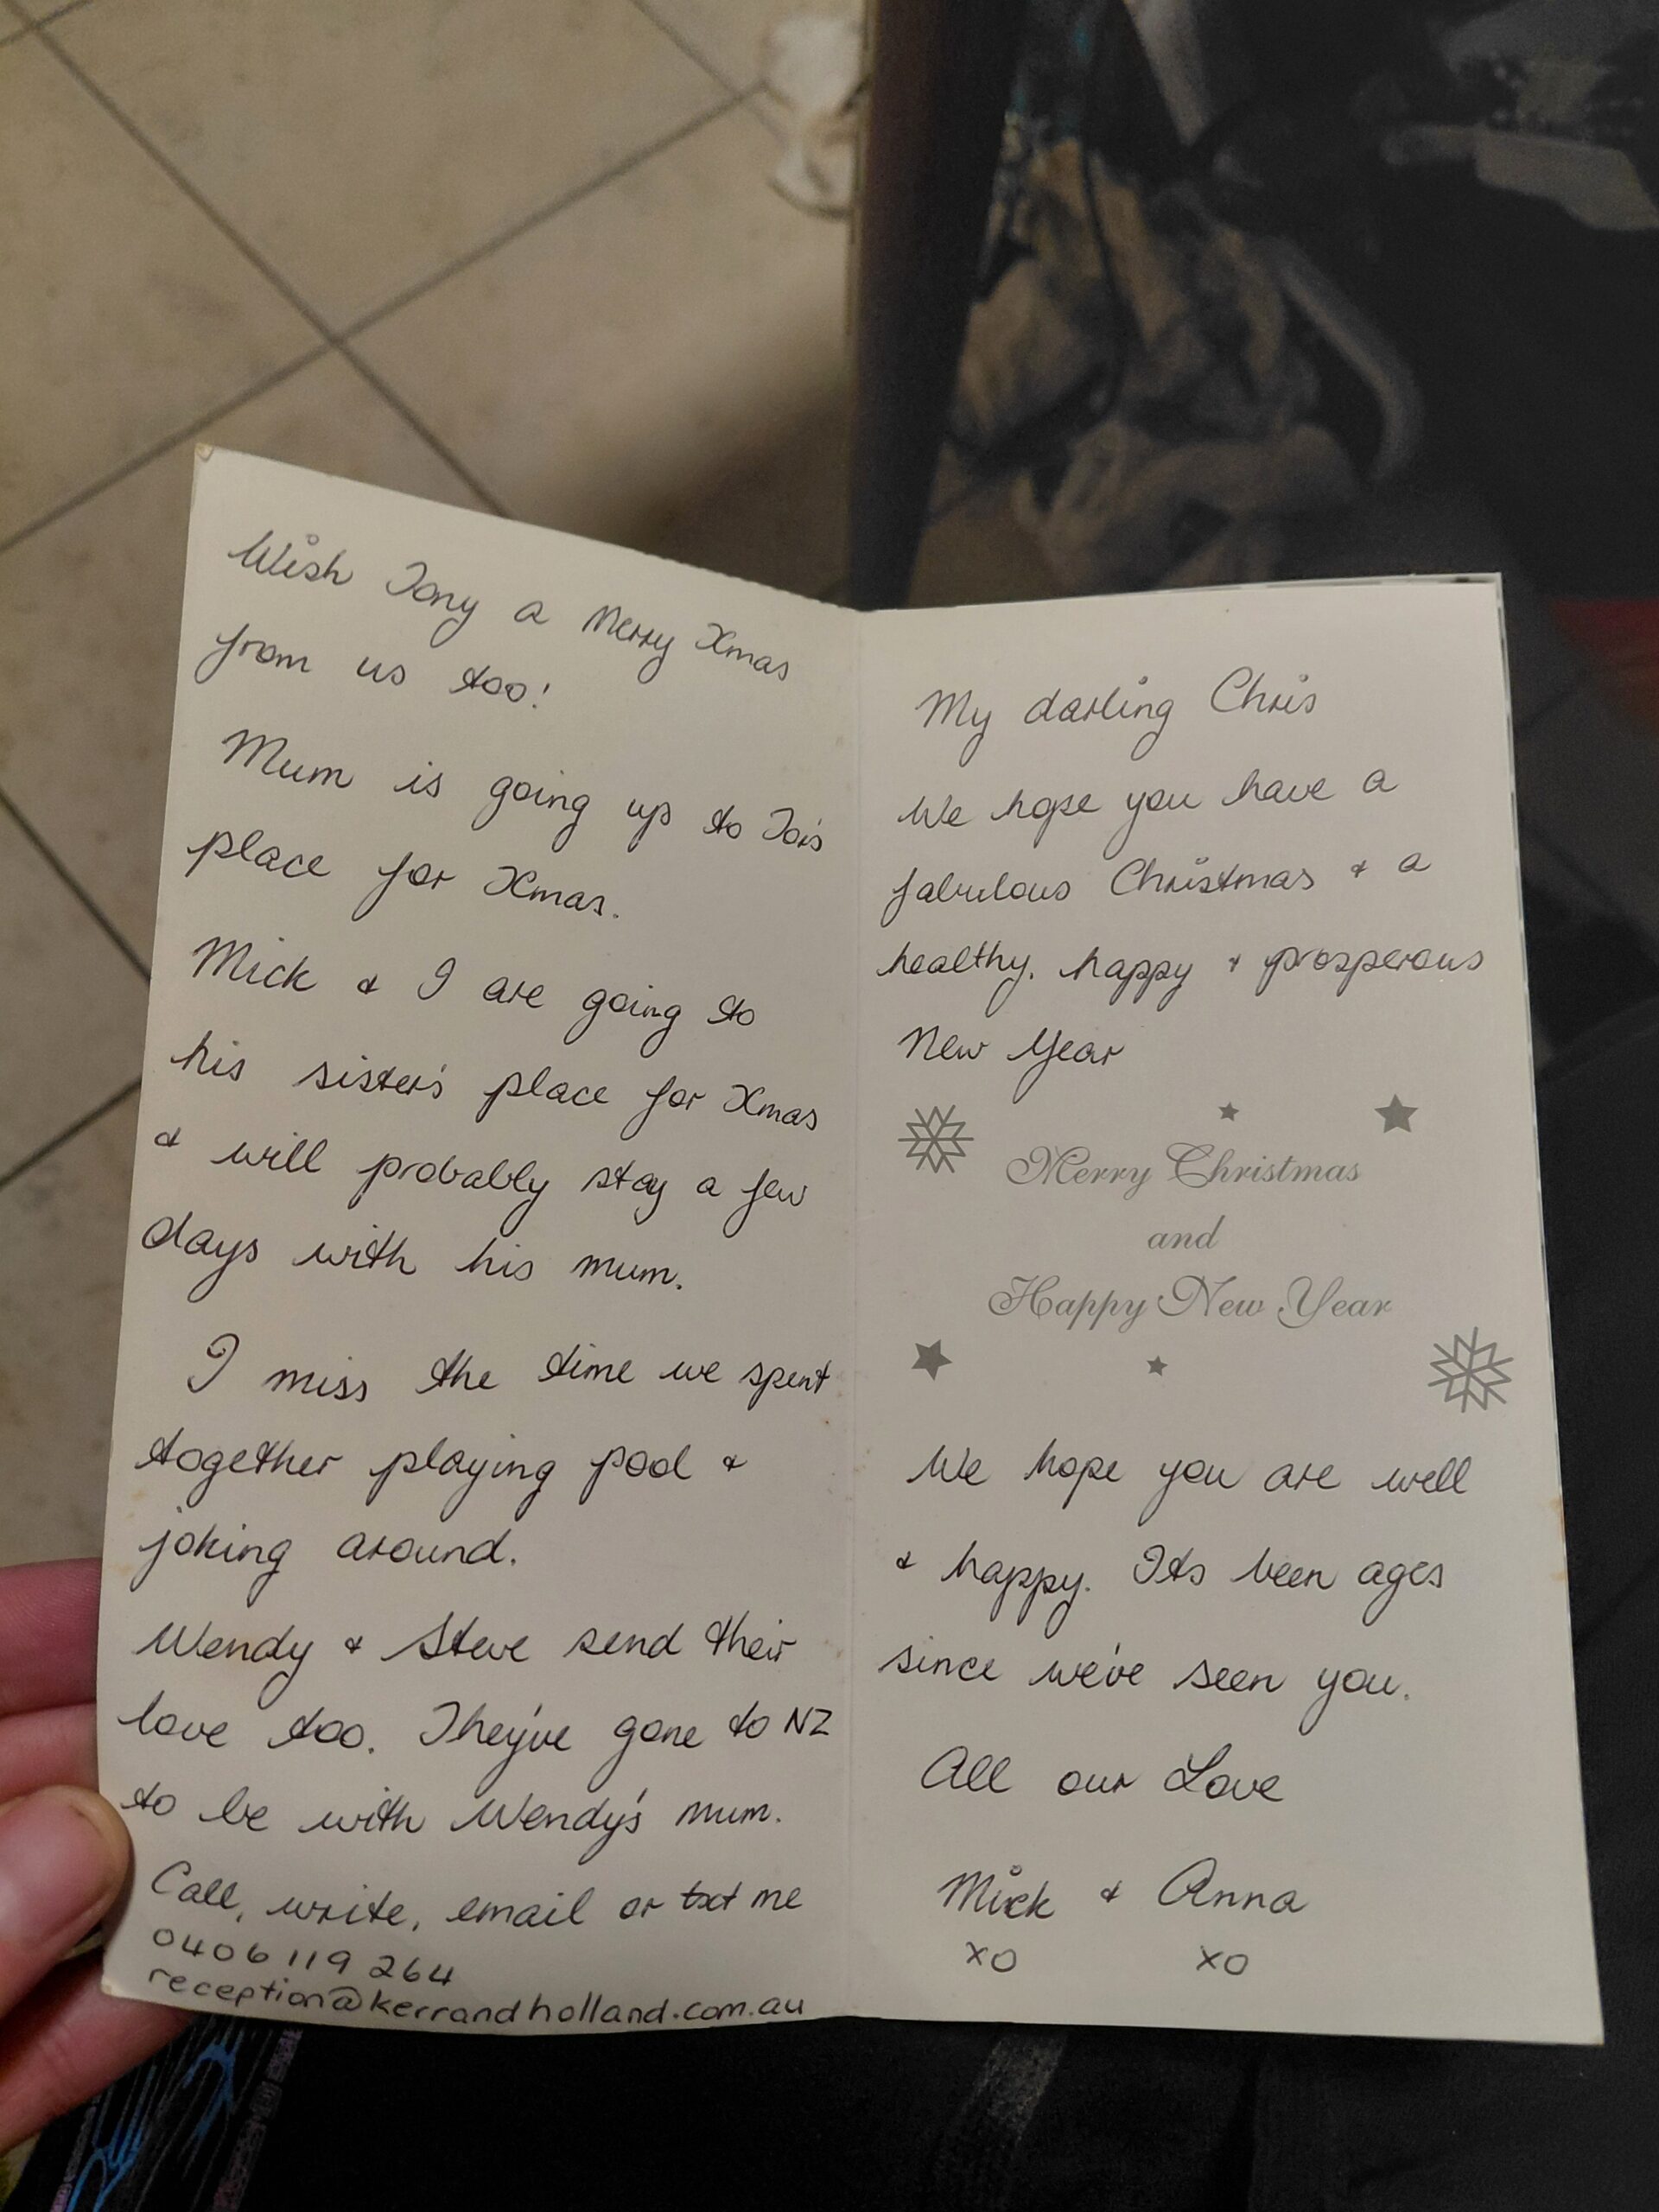 Wish Tony a Merry Xmas
from us too!
Mum is going up to Toi's
place for Xmas.
Mick & I are going to
his sister's place for Xmas
& will probably stay a few
days with his mum.
I miss the time we spent
together playing pool &
joking around.
Wendy & Steve send their
love too. They've gone to NZ
to be with Wendy's mum.
Call, write, email or txt me
0406 119 264
reception@kerrandholland.com.au
My darling Chris
We hope you have a
fabulous Christmas & a
healthy, happy & prosperous
New Year
Merry Christmas
and
Happy New Year
We hope you are well
& happy. Its been ages
since we've seen you.
All our Love
Mick & Anna
xo xo